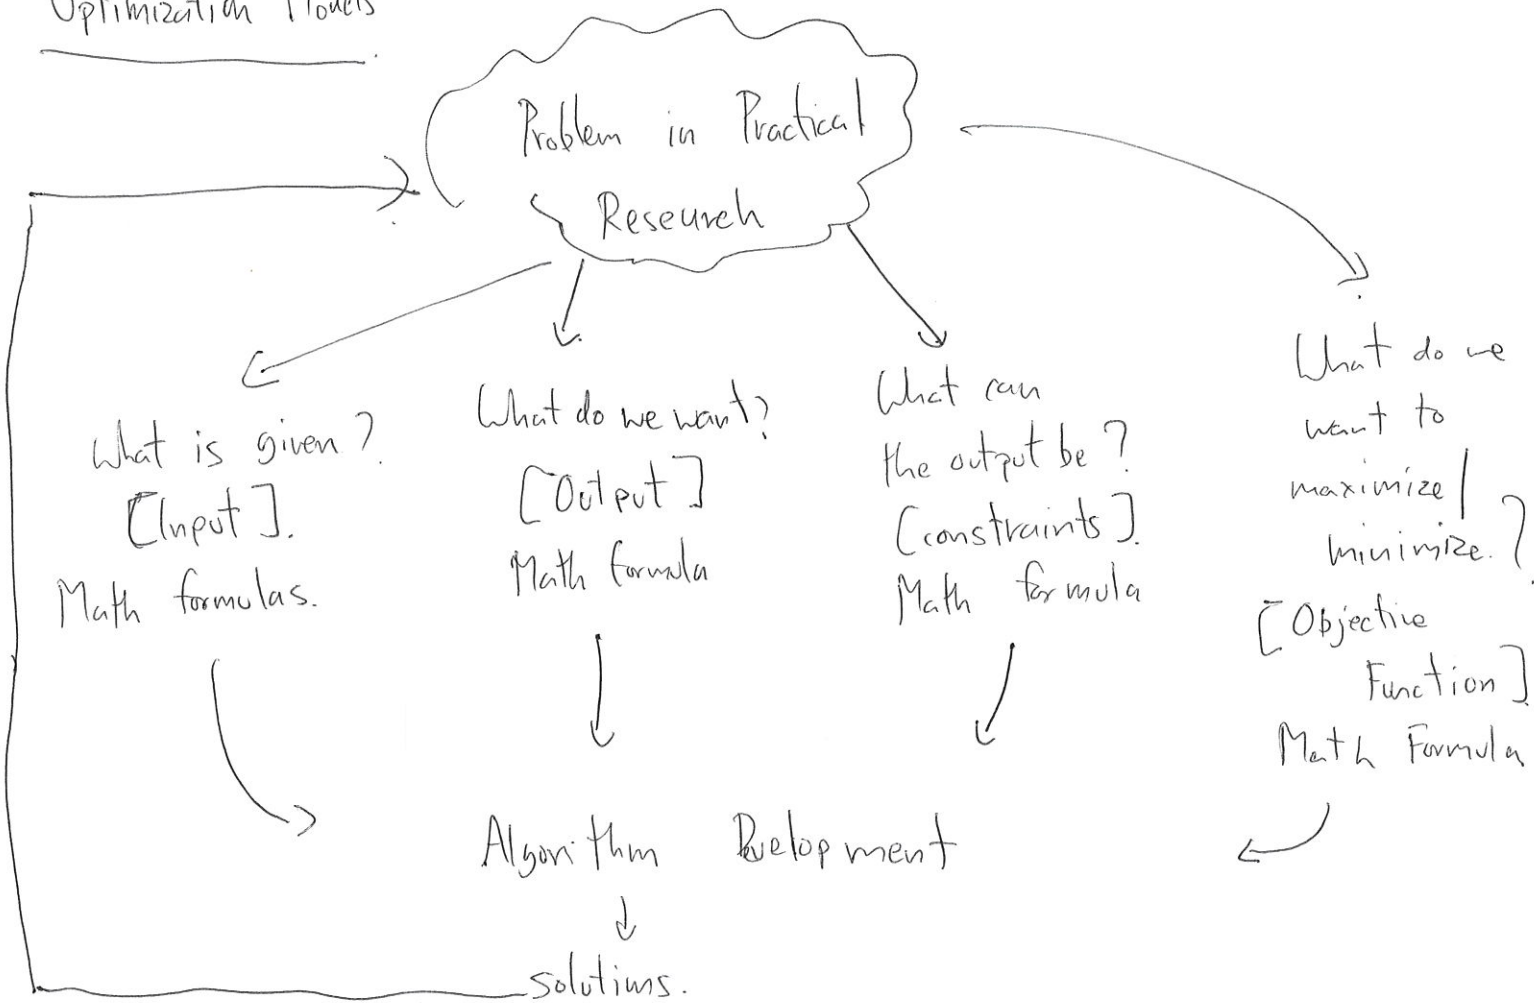 Optimization Models
Problem in Practical
Research
What is given?
[Input].
Math formulas.
What do we want?
[Output]
Math formula
What can
the output be?
[constraints].
Math formula
What do we
want to
maximize/
minimize.?
[Objective
Function]
Math Formula
Algorithm Development
solutions.